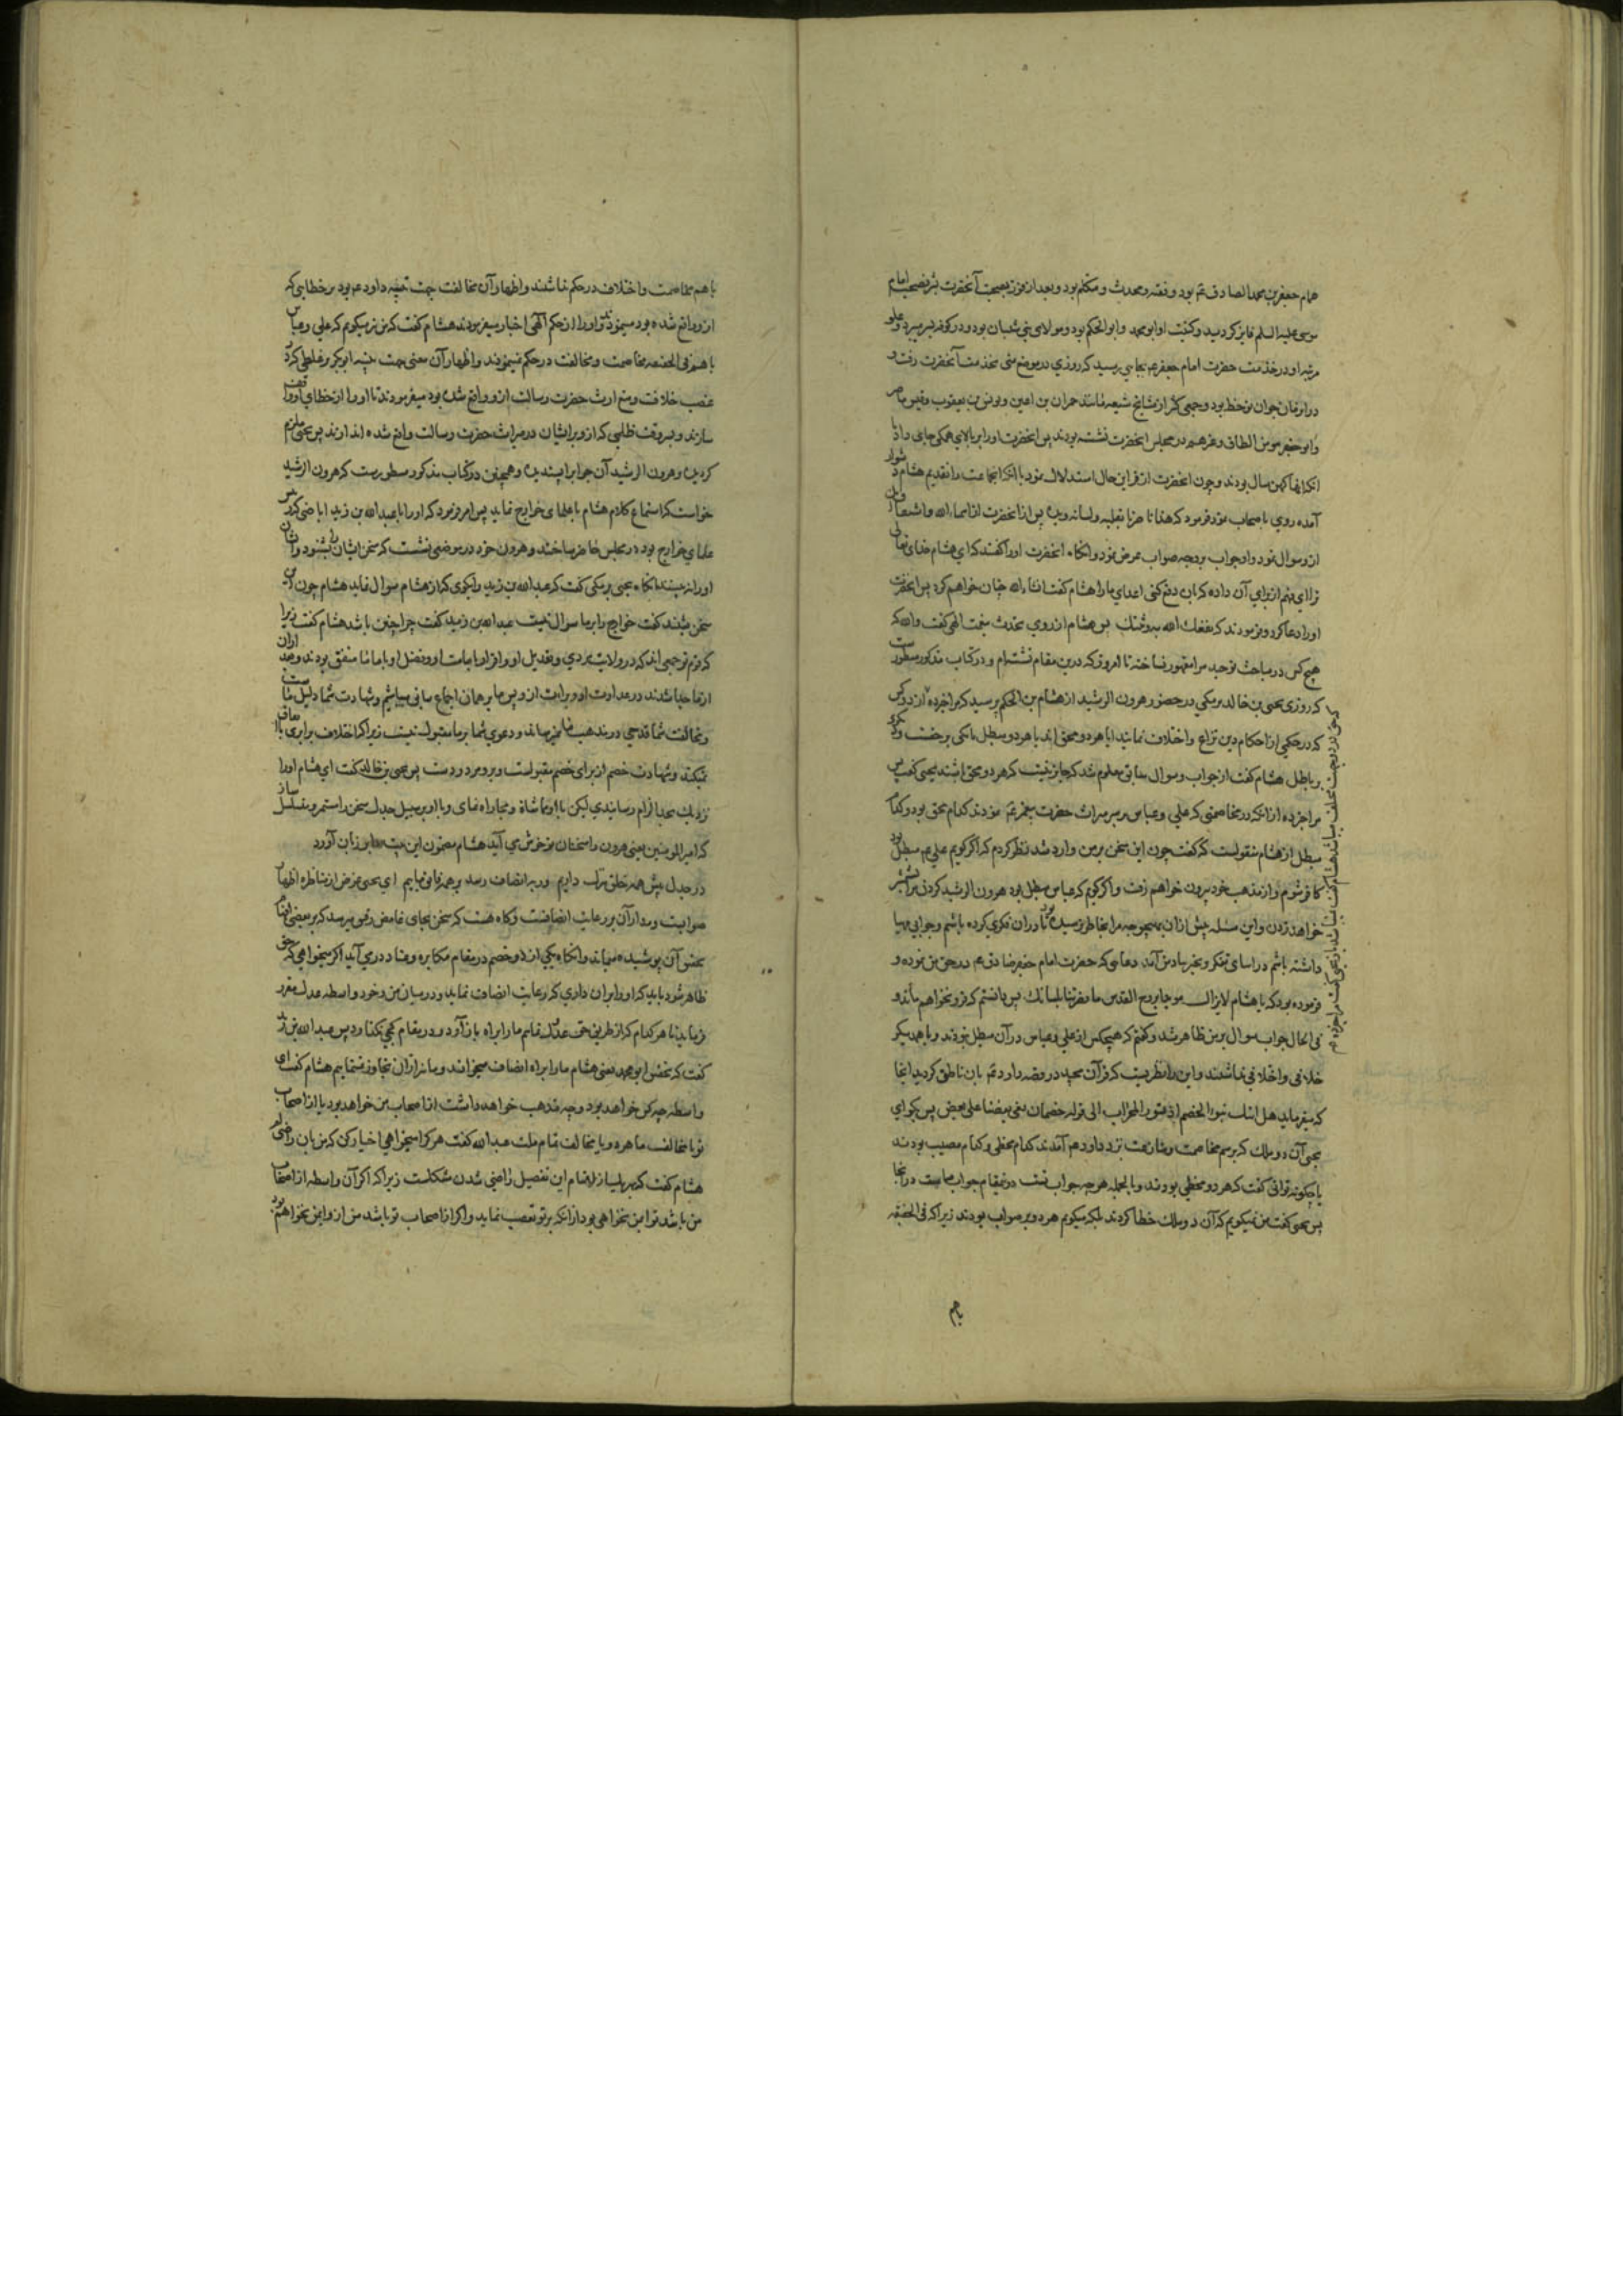 همام جعفر بن محمد الصادق عم بود و فقیه و محدث و متکلم بود و بعد از فوز بصحبت آنحضرت بشرف صحبت امام
موسی علیه السلم فایز کردید و کنیت او ابو محمد و ابو الحکم بود و مولای بنی شیبان بود و در کوفه بسر میبرد و علو
مرتبه او در خدمت حضرت امام جعفر عم بجایی رسید که روزی در موضع منی بخدمت آنحضرت رفت و
در ان زمان جوان نوخط بود و جمعی کثیر از مشایخ شیعه مانند حمران بن اعین و یونس بن یعقوب و قیس ماصر
و ابو جعفر مومن الطاق و غیرهم در مجلس انحضرت نشسته بودند پس انحضرت او را بر بالای همکی جای داد با
انکه انها کهن سال بودند و چون انحضرت از قراین حال استدلال نمود با انکه انجماعت را تقدیم هشام دشوار
آمده روی باصحاب نمود فرمود که هذا ناصرنا بقلبه ولسانه ویده پس از انحضرت از اسماء الله و اشتقاق ان
ازو سوال نمود و او جواب بر وجه صواب عرض نمود و انکاه انحضرت اورا کفتند که ای هشام خدای تعالی
ترا ای فهم از برای آن داده که بان دفع کنی اعدای ما را هشام کفت انشاء الله چنان خواهم کرد پس انحضرت
اورا دعا کرد و فرمودند که نفعك الله به وثبتك پس هشام از روی تحدث بنعمت الهی کفت والله که
هیچ کس در مباحث توحید مرا مقهور نساخته تا امروز که درین مقام نشسته ام و در کتاب مذکور مسطورست
که روزی یحیی بن خالد برمکی در حضور هرون الرشید از هشام بن الحکم پرسید که مرا خبر ده از دو کس
که در حکمی از احکام دین نزاع و اختلاف نمایند ایا هر دو محق اند یا هر دو مبطل یا یکی بر حقست و دیکری
بر باطل هشام کفت از جواب و سوال سابق معلوم شد که جایز نیست که هر دو محق باشند یحیی کفت پس
مرا خبر ده از انکه در مخاصمتی که علی و عباس بر سر میراث حضرت پیغمبر عم نمودند کدام محق بود و کدام
مبطل از هشام منقولست که کفت چون این سخن بر من وارد شد نظر کردم که اکر کویم علی عم مبطل بود
کافر شوم و از مذهب خود بیرون خواهم رفت و اکر کویم که عباس مبطل بود هرون الرشید کردن مرا بشمشیر
خواهد زدن و این مسئله پیش ازان بهیچوجه مرا بخاطر نرسیده بود تا دران فکری کرده باشم و جوابی مهیا
داشته باشم در اثنای تفکر و تحیر بیادمن آمد دعایی که حضرت امام جعفر صادق عم در حق من نموده و
فرموده بود که یا هشام لا یزال موجا بروح القدس ما نصرتنا بلسانك پس دانستم که فرو نخواهم ماند و
فی الحال جواب سوال بر من ظاهر شد و کفتم که هیچکس از علی و عباس در آن مبطل نبودند و با همدیکر
خلافی و اختلافی نداشتند و این را نظیریست که قرآن مجید در قصه داود عم بان ناطق کردید انجا
که میفرماید هل اتیك نبؤ الخصم اذ تسوروا المحراب الی قوله خصمان بغی بعضنا علی بعض پس بکو ای
یحیی آن دو ملك که برسم مخاصمت و منازعت نزد داود عم آمدند کدام مخطی و کدام مصیب بودند
یا چکونه توانی کفت که هر دو مخطی بودند و بالجمله هرچه جواب تست درینمقام جواب ماست در انجا
پس یحیی کفت من نمیکویم که آن دو ملك خطا کردند بلکه میکویم هر دو بر صواب بودند زیرا که فی الحقیقه
باهم
باهم مخاصمت و اختلاف در حکم نداشتند و اظهار آن مخالفت جهت تنبیه داود عم بود بر خطایی که
ازو واقع شده بود میخواستند او را از حکم آلهی اخبار میفرمودند هشام کفت که من نیز میکویم که علی و عباس
باهم فی الحقیقه مخاصمت و مخالفت در حکم نمینمودند و اظهار آن معنی جهت تنبیه ابو بکر بر غلطی که در
غصب خلافت و منع ارث حضرت رسالت ازو واقع شده بود میفرمودند تا او را از خطای او واقف
سازند و بر وقت ظلمی که ازو بر ایشان در میراث حضرت رسالت واقع شده اندازند پس یحیی ملزم
کردیده و هرون الرشید آن جواب را پسندیده و همچنین در کتاب مذکور مسطورست که هرون الرشید
خواست که استماع کلام هشام با علمای خوارج نماید پس امر فرمود که او را با عبد الله بن زید اباضی که از
علمای خوارج بوده در مجلس حاضر ساختند و هرون خود در موضعی نشست که سخن ایشان را بشنود و ایشان
او را نه بینند انکاه یحیی برمکی کفت که عبد الله بن زید را بکوی که از هشام سوال نماید هشام چون این
سخن شنید کفت خوارج را بر ما سوال نیست عبد الله بن زید کفت چرا چنین باشد هشام کفت زیرا
که قوم تو جمعی اند که در ولایت مردی و تعدیل او و اقرار بامامت او و فضل او با ما متفق بودند و بعد ازان
از ما جدا شدند در عداوت او و براءت ازو پس ما بر همان اجماع سابق میباشیم و شهادت شما دلیل ماست
و مخالفت شما قدحی در مذهب ما نمیرساند و دعوی شما بر ما مقبول نیست زیرا که اختلاف برابری با اتفاق
نمیکند و شهادت خصم از برای خصم مقبولست و برو مردودست پس یحیی بن خالد کفت ای هشام او را
نزدیك بحد الزام رسانیدی لیکن با او مماشاة و مجاراه نمای و با او بر سبیل جدل سخن را مستمر و مسلسل ساز
که امیر المومنین یعنی هرون را سخنان تو خوش می آید هشام مضمون این بیت را بر زبان آورد
در جدل پیش همه خلق بزرك داریم ور به انصاف رسد بر همه فایق باییم ای یحیی غرض از مناظره اظهار
صوابست و مدار آن بر رعایت انصافست و کاه هست که سخن بجای غامض دقیق میرسد که بر بعضی افهام
بعضی آن پوشیده میماند و انکاه یکی از دو خصم در مقام مکابره و عناد در می آید اکر میخواهی که حق
ظاهر شود باید که او را بران داری که رعایت انصاف نماید و در میان من و خود واسطه عدل مقرر
فرماید تا هر کدام که از طریق حق عدول نمایم ما را براه باز آورد و در مقام کجی نکذارد پس عبد الله بن زید
کفت که بحق ابو محمد یعنی هشام ما را براه انصاف میخواند و ما نیز ازان تجاوز ننماییم هشام کفت ای
واسطه چه کس خواهد بود و چه مذهب خواهد داشت از اصحاب من خواهد بود یا از اصحاب
تو یا مخالف ما هر دو یا مخالف تمام ملت عبد الله کفت هر کرا میخواهی اختیار کن که من بان راضی ام
هشام کفت که بر این تفصیل راضی شدن مشکلست زیرا که اکر آن واسطه از اصحاب
من باشد تو ایمن نخواهی بود از انکه بر تو تعصب نماید و اکر از اصحاب تو باشد من ازو ایمن نخواهم بود